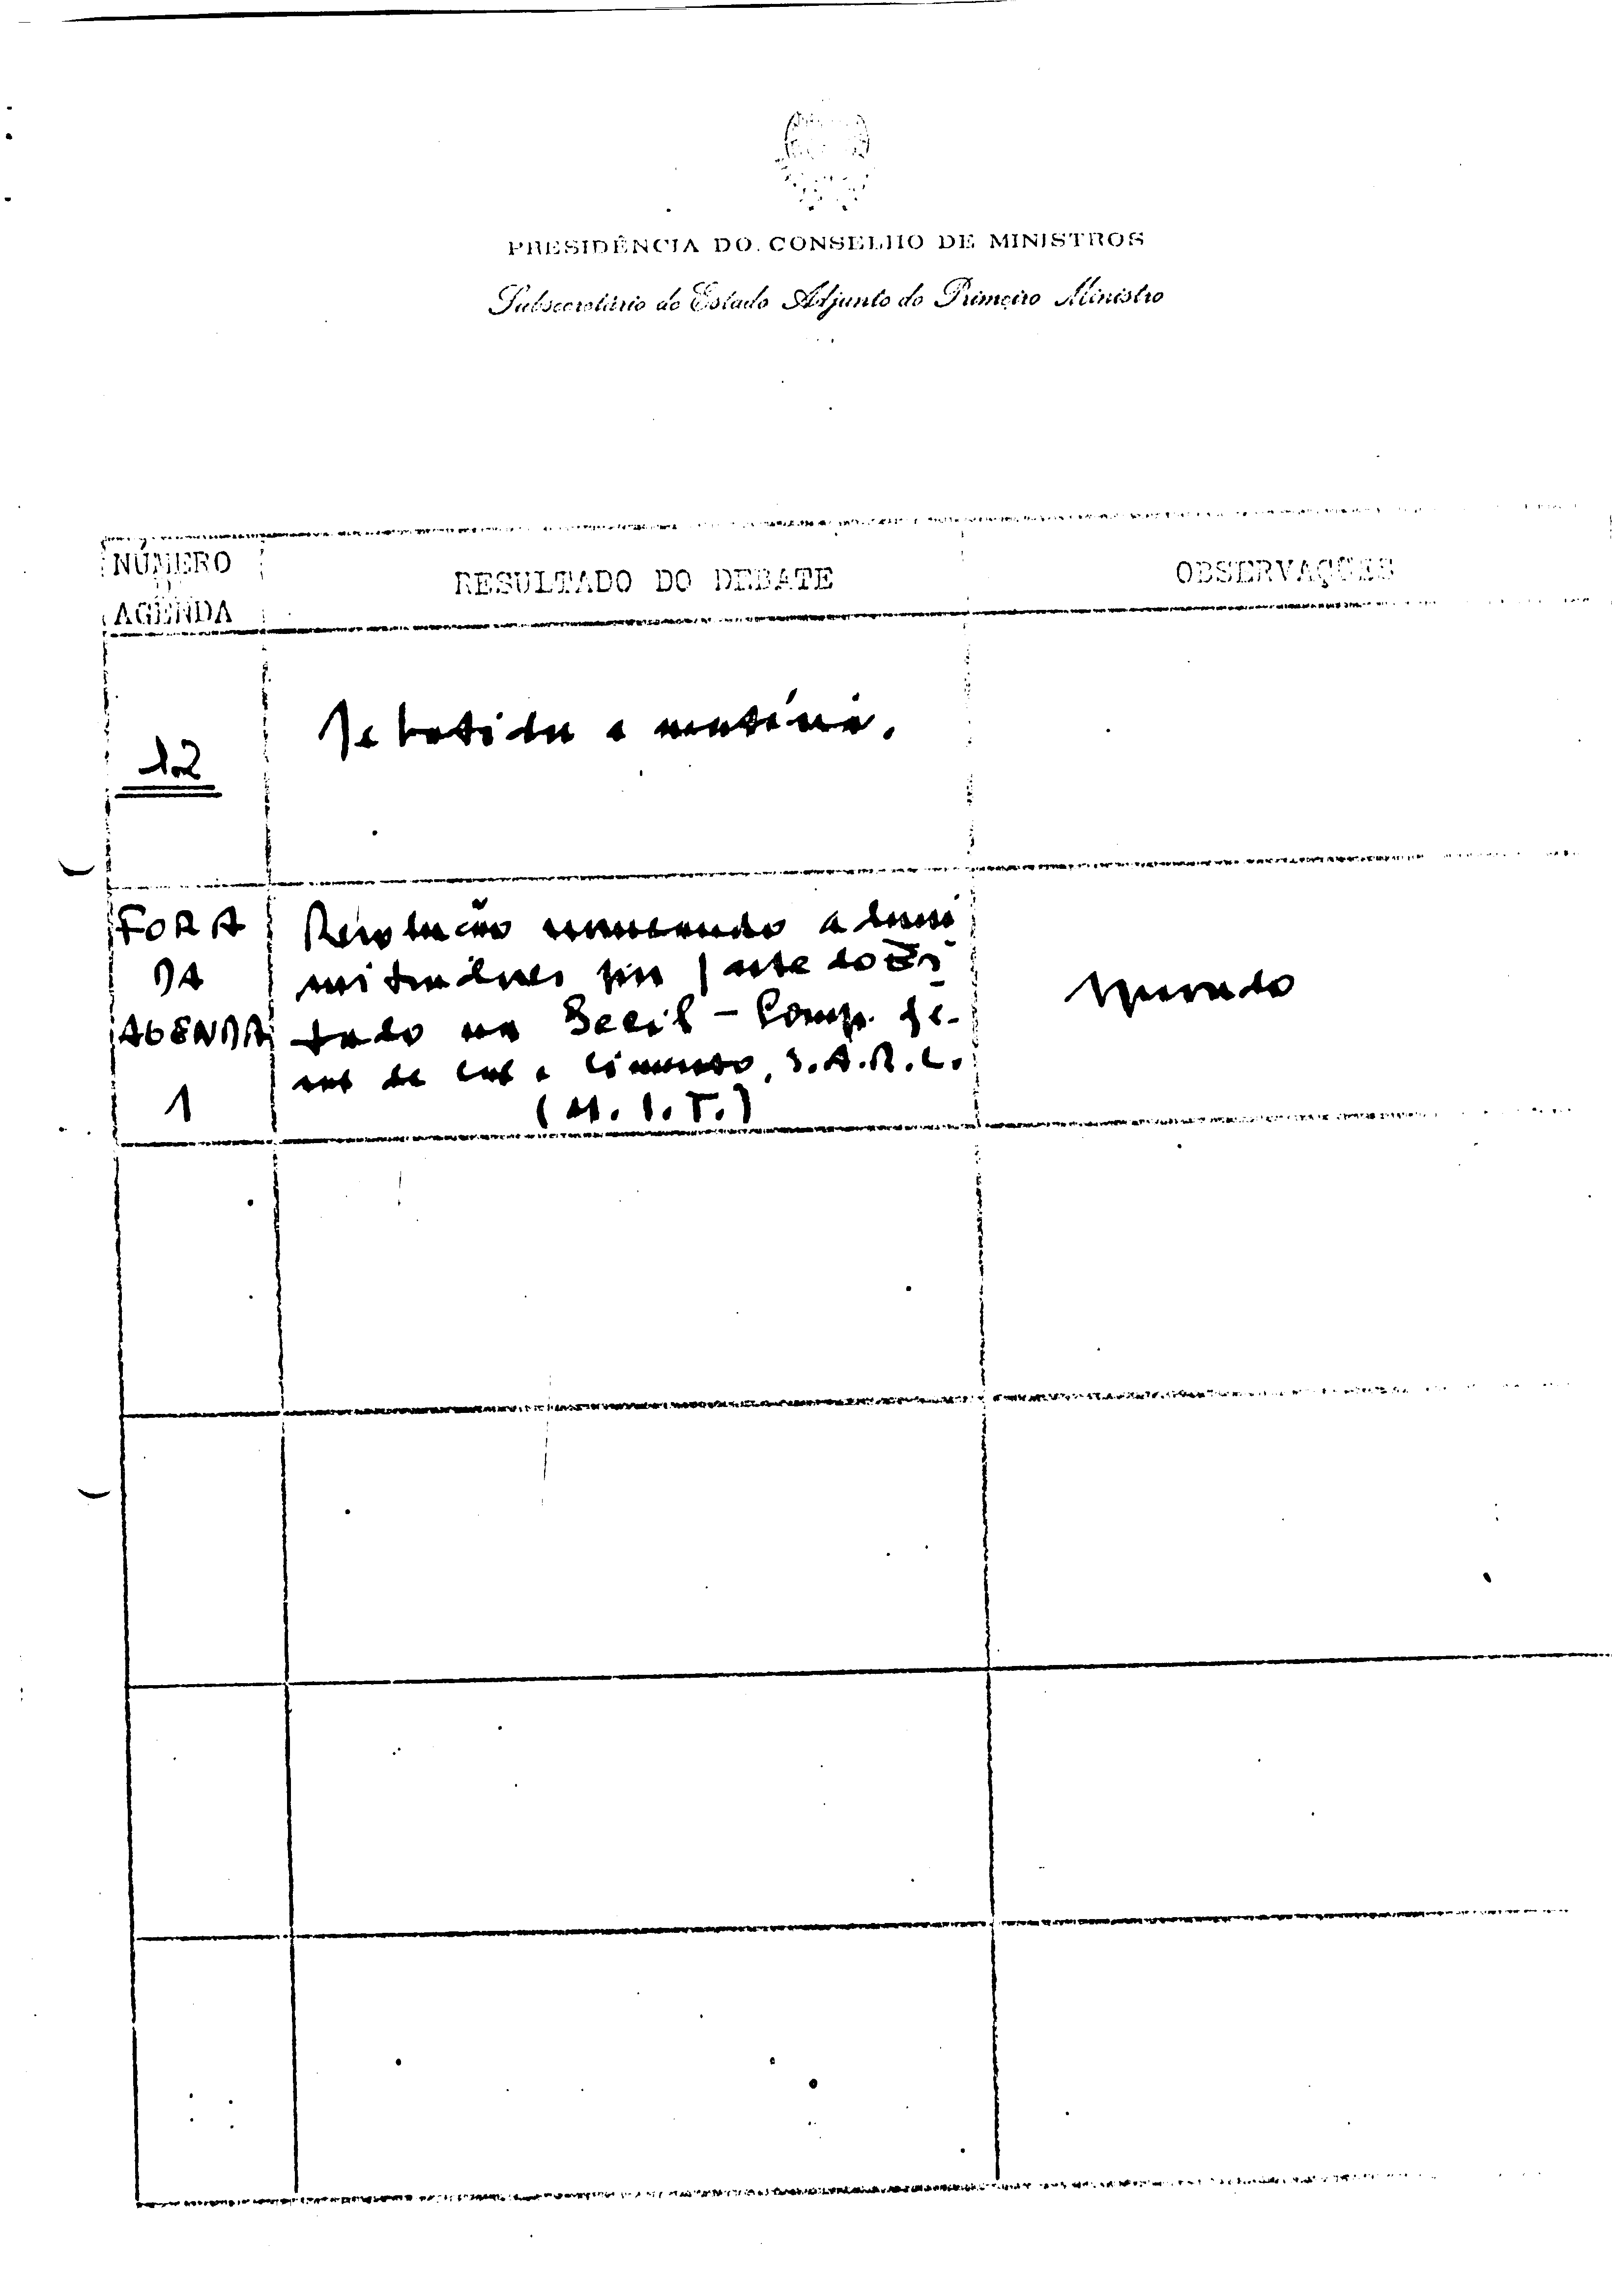 PRESIDÊNCIA DO CONSELHO DE MINISTROS
Subsecretário de Estado Adjunto do Primeiro Ministro
NÚMERO
DA
AGENDA
RESULTADO DO DEBATE
OBSERVAÇÕES
12
Debatida a matéria.
FORA
DA
AGENDA
1
Resolução nomeando
por parte do Es
tado na Secil - Comp. Ge-
ral de Cal e Cimento, S.A.R.L.
(M.I.T.)
Aprovado